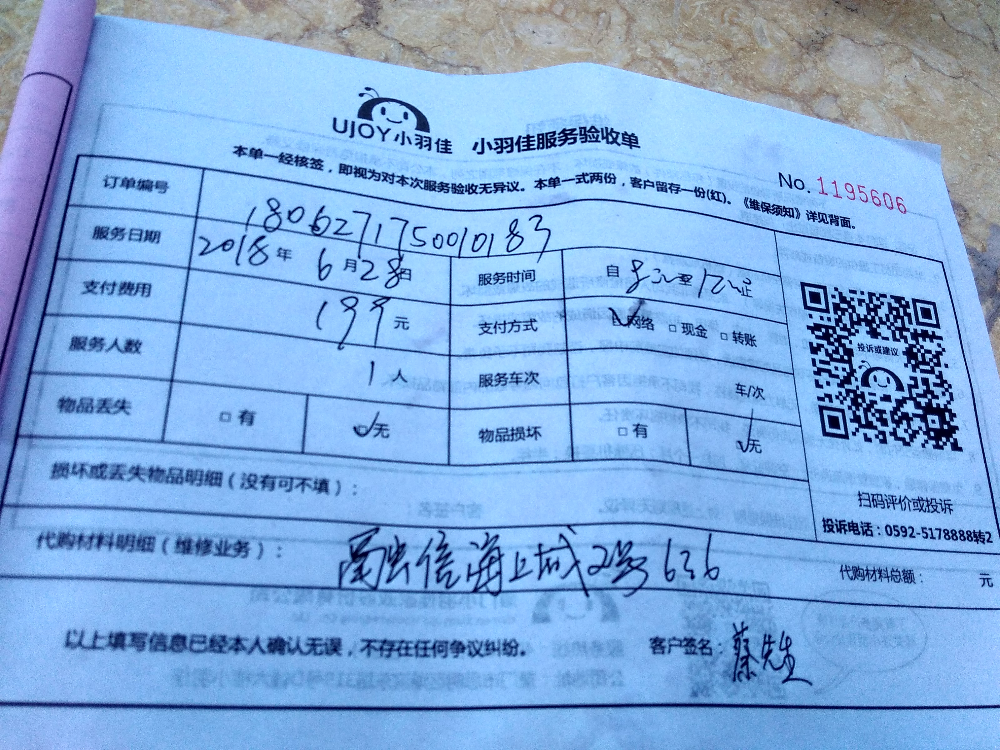 UJOY小羽佳 小羽佳服务验收单
本单一经核签，即视为对本次服务验收无异议。本单一式两份，客户留存一份(红)。《维保须知》详见背面。
No. 1195606
订单编号 1806271750010183
服务日期 2018年6月28日 服务时间 自8:00至12:00止
支付费用 199元 支付方式 ☑网络 □现金 □转账
服务人数 1人 服务车次 车/次
物品丢失 □有 ☑无 物品损坏 □有 ☑无
投诉或建议
损坏或丢失物品明细（没有可不填）：
扫码评价或投诉
投诉电话：0592-5178888转2
代购材料明细（维修业务）： 禹洲信海上城2号626
代购材料总额： 元
以上填写信息已经本人确认无误，不存在任何争议纠纷。 客户签名：蔡先生